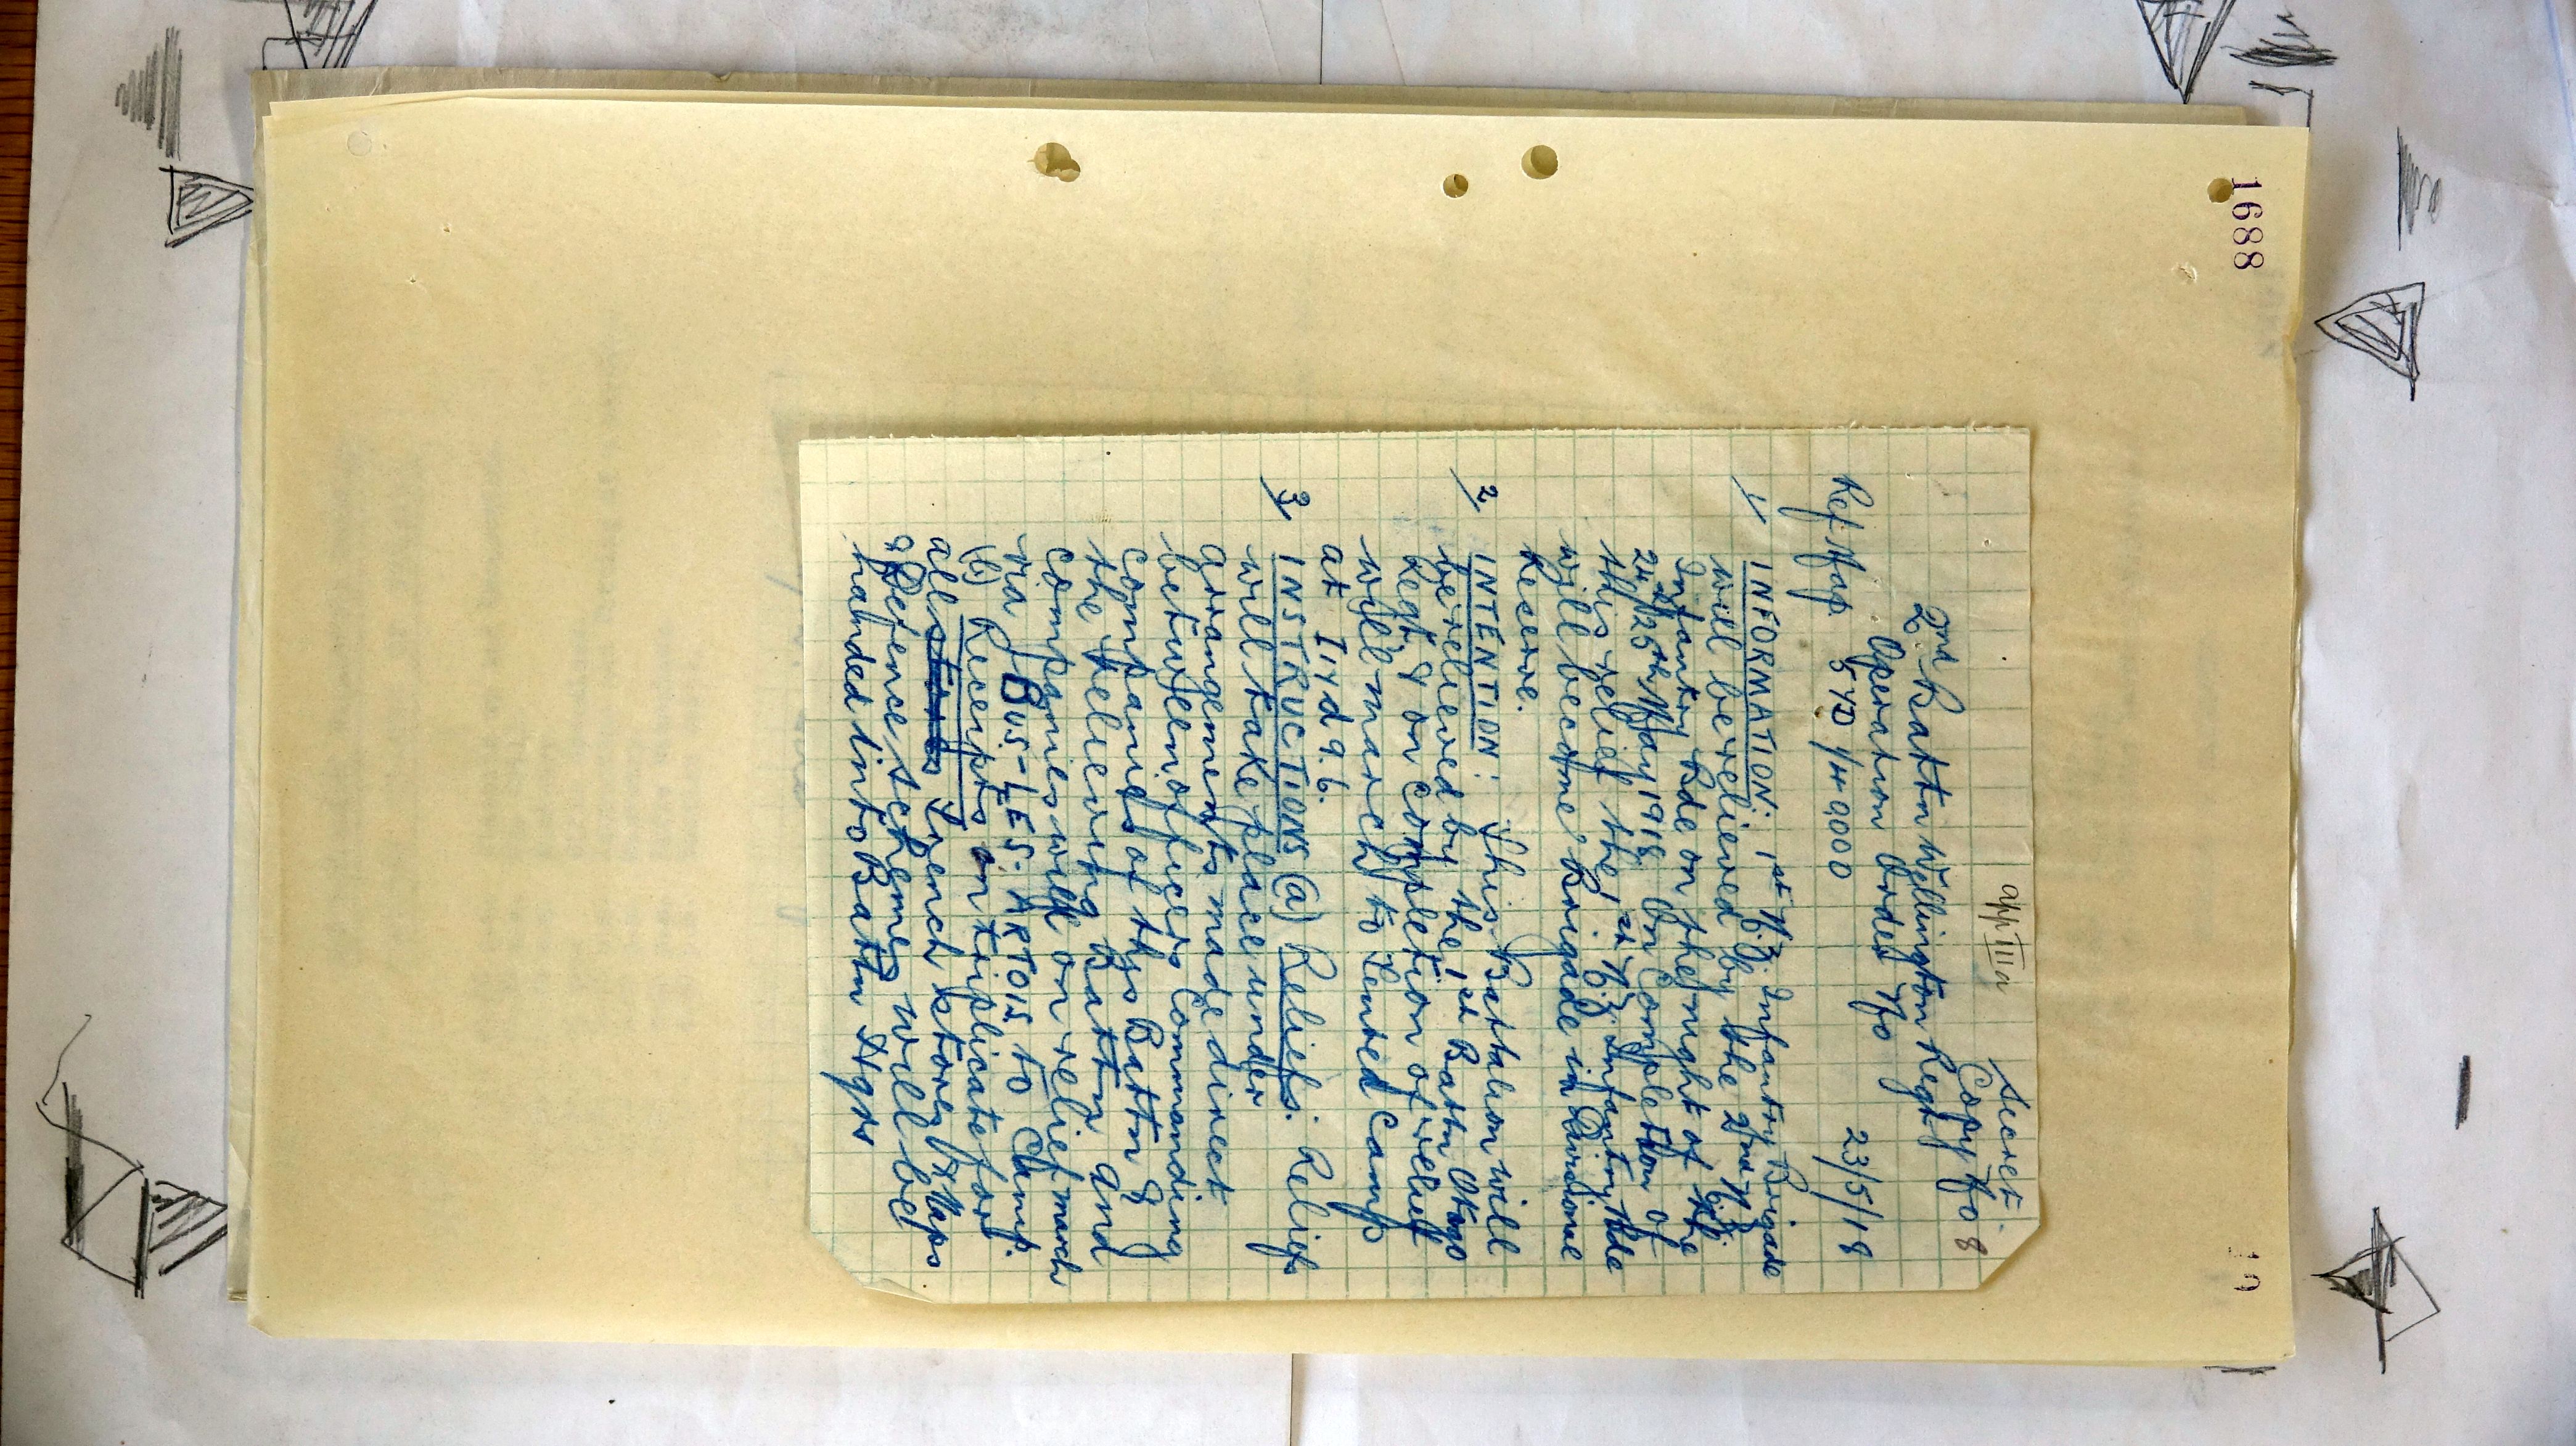 1688
19
app III a
Secret.
Copy No 8
2nd Battn Wellington Regt
Operation Order No
23/5/18
Ref Map. 57D 1/40000
1/ INFORMATION: 1st N.Z. Infantry Brigade
will be relieved by the 2nd N.Z.
Infantry Bde on the night of the
24th/25th May 1918. On Completion of
this relief the 1st N.Z. Infantry Bde
will become Brigade in Divisional
Reserve.
2/ INTENTION: This Battalion will
be relieved by the 1st Battn Otago
Regt, & on completion of relief
will march to Tented Camp
at I.14.d.9.6.
3/ INSTRUCTIONS (a) Reliefs. Reliefs
will take place under
arrangements made direct
between officers Commanding
companies of this Battn &
the relieving Battn and
companies will on relief march
via BUS-LES-ARTOIS to Camp.
(b) Receipts in triplicate for
all stores Trench stores, Maps
& Defence schemes will be
handed into Battn Hqrs